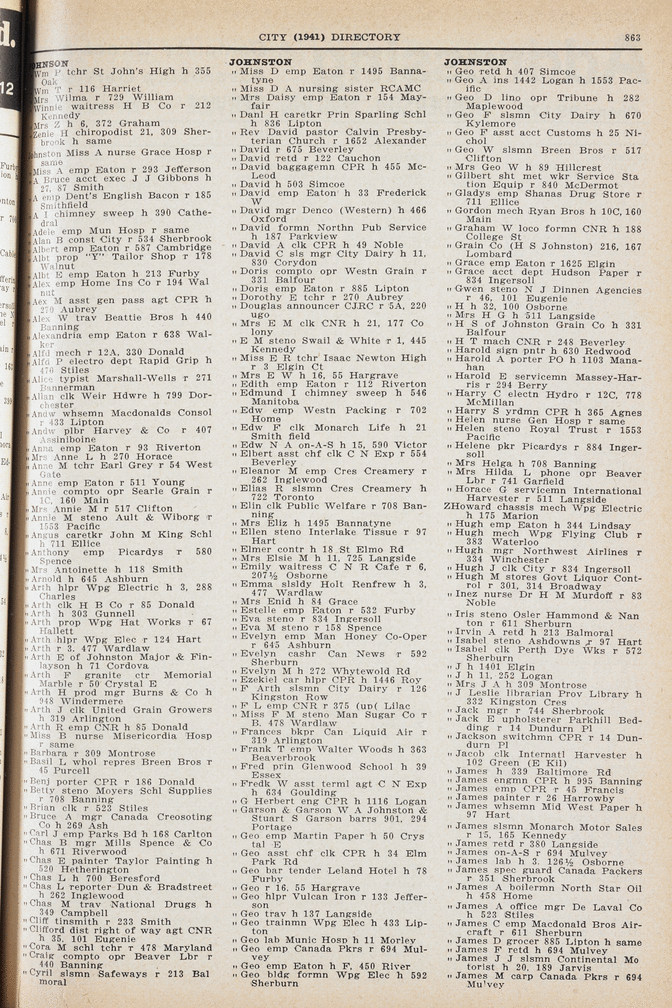 CITY (1941) DIRECTORY 863
JOHNSON
" Wm P tchr St John's High h 355
Oak
Wm T r 116 Harriet
Mrs Wilma r 729 William
Winnie waitress H B Co r 212
Kennedy
Mrs Z h 6, 372 Graham
Zenie H chiropodist 21, 309 Sher-
brook h same
Johnston Miss A nurse Grace Hosp r
same
Miss A emp Eaton r 293 Jefferson
A Bruce acct exec J J Gibbons h
27, 87 Smith
A emp Dent's English Bacon r 185
Smithfield
A I chimney sweep h 390 Cathe-
dral
Adele emp Mun Hosp r same
Alan B const City r 534 Sherbrook
Albert emp Eaton r 587 Cambridge
Albt prop "Y" Tailor Shop r 178
Walnut
Albt E emp Eaton h 213 Furby
Alex emp Home Ins Co r 194 Wal
nut
Aex M asst gen pass agt CPR h
270 Aubrey
Alex W trav Beattie Bros h 440
Banning
Alexandria emp Eaton r 638 Wal-
ker
Alfd mech r 12A, 330 Donald
Alfd P electro dept Rapid Grip h
470 Stiles
Alice typist Marshall-Wells r 271
Bannerman
Allan clk Weir Hdwre h 799 Dor-
chester
Andw whsemn Macdonalds Consol
r 433 Lipton
Andw plbr Harvey & Co r 407
Assiniboine
Anna emp Eaton r 93 Riverton
Mrs Anne L h 270 Horace
Anne M tchr Earl Grey r 54 West
Gate
Anne emp Eaton r 511 Young
Annie compto opr Searle Grain r
1C, 160 Main
Mrs Annie M r 517 Clifton
Annie M steno Ault & Wiborg r
1553 Pacific
Angus caretkr John M King Schl
h 711 Ellice
Anthony emp Picardys r 580
Spence
Mrs Antoinette h 118 Smith
Arnold h 645 Ashburn
Arth hlpr Wpg Electric h 3, 288
Charles
Arth clk H B Co r 85 Donald
Arth h 303 Gunnell
Arth prop Wpg Hat Works r 67
Hallett
Arth hlpr Wpg Elec r 124 Hart
Arth r 3, 477 Wardlaw
Arth E of Johnston Major & Fin-
layson h 71 Cordova
Arth F granite ctr Memorial
Marble r 50 Crystal E
Arth H prod mgr Burns & Co h
948 Windermere
Arth J clk United Grain Growers
h 319 Arlington
Arth R emp CNR h 85 Donald
Miss B nurse Misericordia Hosp
r same
Barbara r 309 Montrose
Basil L whol repres Breen Bros r
45 Purcell
Benj porter CPR r 186 Donald
Betty steno Moyers Schl Supplies
r 708 Banning
Brian clk r 523 Stiles
Bruce A mgr Canada Creosoting
Co h 269 Ash
Carl J emp Parks Bd h 168 Carlton
Chas B mgr Mills Spence & Co
h 671 Riverwood
Chas E painter Taylor Painting h
520 Hetherington
Chas L h 700 Beresford
Chas L reporter Dun & Bradstreet
h 262 Inglewood
Chas M trav National Drugs h
349 Campbell
Cliff tinsmith r 233 Smith
Clifford dist right of way agt CNR
h 35, 101 Eugenie
Cora M schl tchr r 478 Maryland
Craig compto opr Beaver Lbr r
440 Banning
Cyril slsmn Safeways r 213 Bal
moral
JOHNSTON
" Miss D emp Eaton r 1495 Banna-
tyne
" Miss D A nursing sister RCAMC
" Mrs Daisy emp Eaton r 154 May-
fair
" Danl H caretkr Prin Sparling Schl
h 836 Lipton
" Rev David pastor Calvin Presby-
terian Church r 1652 Alexander
" David r 675 Beverley
" David retd r 122 Cauchon
" David baggagemn CPR h 455 Mc-
Leod
" David h 503 Simcoe
" David emp Eaton h 33 Frederick
W
" David mgr Denco (Western) h 466
Oxford
" David formn Northn Pub Service
h 187 Parkview
" David A clk CPR h 49 Noble
" David C sls mgr City Dairy h 11,
830 Corydon
" Doris compto opr Westn Grain r
331 Balfour
" Doris emp Eaton r 885 Lipton
" Dorothy E tchr r 270 Aubrey
" Douglas announcer CJRC r 5A, 220
ugo
" Mrs E M clk CNR h 21, 177 Co
lony
" E M steno Swail & White r 1, 445
Kennedy
" Miss E R tchr Isaac Newton High
r 3 Elgin Ct
" Mrs E W h 16, 55 Hargrave
" Edith emp Eaton r 112 Riverton
" Edmund I chimney sweep h 546
Manitoba
" Edw emp Westn Packing r 702
Home
" Edw F clk Monarch Life h 21
Smith field
" Edw N A on-A-S h 15, 590 Victor
" Elbert asst chf clk C N Exp r 554
Beverley
" Eleanor M emp Cres Creamery r
262 Inglewood
" Elias R slsmn Cres Creamery h
722 Toronto
" Elin clk Public Welfare r 708 Ban-
ning
" Mrs Eliz h 1495 Bannatyne
" Ellen steno Interlake Tissue r 97
Hart
" Elmer contr h 18 St Elmo Rd
" Mrs Elsie M h 11, 725 Langside
" Emily waitress C N R Cafe r 6,
207½ Osborne
" Emma slsldy Holt Renfrew h 3,
477 Wardlaw
" Mrs Enid h 84 Grace
" Estelle emp Eaton r 532 Furby
" Eva steno r 834 Ingersoll
" Eva M steno r 158 Spence
" Evelyn emp Man Honey Co-Oper
r 645 Ashburn
" Evelyn cashr Can News r 592
Sherburn
" Evelyn M h 272 Whytewold Rd
" Ezekiel car hlpr CPR h 1446 Roy
" F Arth slsmn City Dairy r 126
Kingston Row
" F L emp CNR r 375 (up( Lilac
" Miss F M steno Man Sugar Co r
B, 478 Wardlaw
" Frances bkpr Can Liquid Air r
319 Arlington
" Frank T emp Walter Woods h 363
Beaverbrook
" Fred prin Glenwood School h 39
Essex
" Fredk W asst terml agt C N Exp
h 634 Goulding
" G Herbert eng CPR h 1116 Logan
" Garson & Garson W A Johnston &
Stuart S Garson barrs 901, 294
Portage
" Geo emp Martin Paper h 50 Crys
tal E
" Geo asst chf clk CPR h 34 Elm
Park Rd
" Geo bar tender Leland Hotel h 78
Furby
" Geo r 16, 55 Hargrave
" Geo hlpr Vulcan Iron r 133 Jeffer-
son
" Geo trav h 137 Langside
" Geo trainmn Wpg Elec h 433 Lip-
ton
" Geo lab Munic Hosp h 11 Morley
" Geo emp Canada Pkrs r 694 Mul-
vey
" Geo emp Eaton h F, 450 River
" Geo bldg formn Wpg Elec h 592
Sherburn
JOHNSTON
" Geo retd h 407 Simcoe
" Geo A ins 1442 Logan h 1553 Pac-
ific
" Geo D lino opr Tribune h 282
Maplewood
" Geo F slsmn City Dairy h 670
Kylemore
" Geo F asst acct Customs h 25 Ni-
chol
" Geo W slsmn Breen Bros r 517
Clifton
" Mrs Geo W h 89 Hillcrest
" Gilbert sht met wkr Service Sta
tion Equip r 840 McDermot
" Gladys emp Shanas Drug Store r
711 Ellice
" Gordon mech Ryan Bros h 10C, 160
Main
" Graham W loco formn CNR h 188
College St
" Grain Co (H S Johnston) 216, 167
Lombard
" Grace emp Eaton r 1625 Elgin
" Grace acct dept Hudson Paper r
834 Ingersoll
" Gwen steno N J Dinnen Agencies
r 46, 101 Eugenie
" H h 32, 100 Osborne
" Mrs H G h 511 Langside
" H S of Johnston Grain Co h 331
Balfour
" H T mach CNR r 248 Beverley
" Harold sign pntr h 630 Redwood
" Harold A porter PO h 1103 Mana-
han
" Harold E servicemn Massey-Har-
ris r 294 Berry
" Harry C electn Hydro r 12C, 778
McMillan
" Harry S yrdmn CPR h 365 Agnes
" Helen nurse Gen Hosp r same
" Helen steno Royal Trust r 1553
Pacific
" Helene pkr Picardys r 884 Inger-
soll
" Mrs Helga h 708 Banning
" Mrs Hilda L phone opr Beaver
Lbr r 741 Garfield
" Horace G servicemn International
Harvester r 511 Langside
ZHoward chassis mech Wpg Electric
h 175 Marion
" Hugh emp Eaton h 344 Lindsay
" Hugh mech Wpg Flying Club r
383 Waterloo
" Hugh mgr Northwest Airlines r
334 Winchester
" Hugh J clk City r 834 Ingersoll
" Hugh M stores Govt Liquor Cont-
rol r 301, 314 Broadway
" Inez nurse Dr H M Murdoff r 83
Noble
" Iris steno Osler Hammond & Nan
ton r 611 Sherburn
" Irvin A retd h 213 Balmoral
" Isabel steno Ashdowns r 97 Hart
" Isabel clk Perth Dye Wks r 572
Sherburn
" J h 1401 Elgin
" J h 11, 252 Logan
" Mrs J A h 309 Montrose
" J Leslie librarian Prov Library h
332 Kingston Cres
" Jack mgr r 744 Sherbrook
" Jack E upholsterer Parkhill Bed-
ding r 14 Dundurn Pl
" Jackson switchmn CPR r 14 Dun-
durn Pl
" Jacob clk Internatl Harvester h
102 Green (E Kil)
" James h 339 Baltimore Rd
" James engmn CPR h 995 Banning
" James emp CPR r 45 Francis
" James painter r 26 Harrowby
" James whsemn Mid West Paper h
97 Hart
" James slsmn Monarch Motor Sales
r 15, 165 Kennedy
" James retd r 380 Langside
" James on-A-S r 694 Mulvey
" James lab h 3, 126½ Osborne
" James spec guard Canada Packers
r 351 Sherbrook
" James A boilermn North Star Oil
h 458 Home
" James A office mgr De Laval Co
h 523 Stiles
" James C emp Macdonald Bros Air-
craft r 611 Sherburn
" James D grocer 885 Lipton h same
" James F retd h 694 Mulvey
" James J J slsmn Continental Mo
torist h 20, 189 Jarvis
" James M carp Canada Pkrs r 694
Mulvey